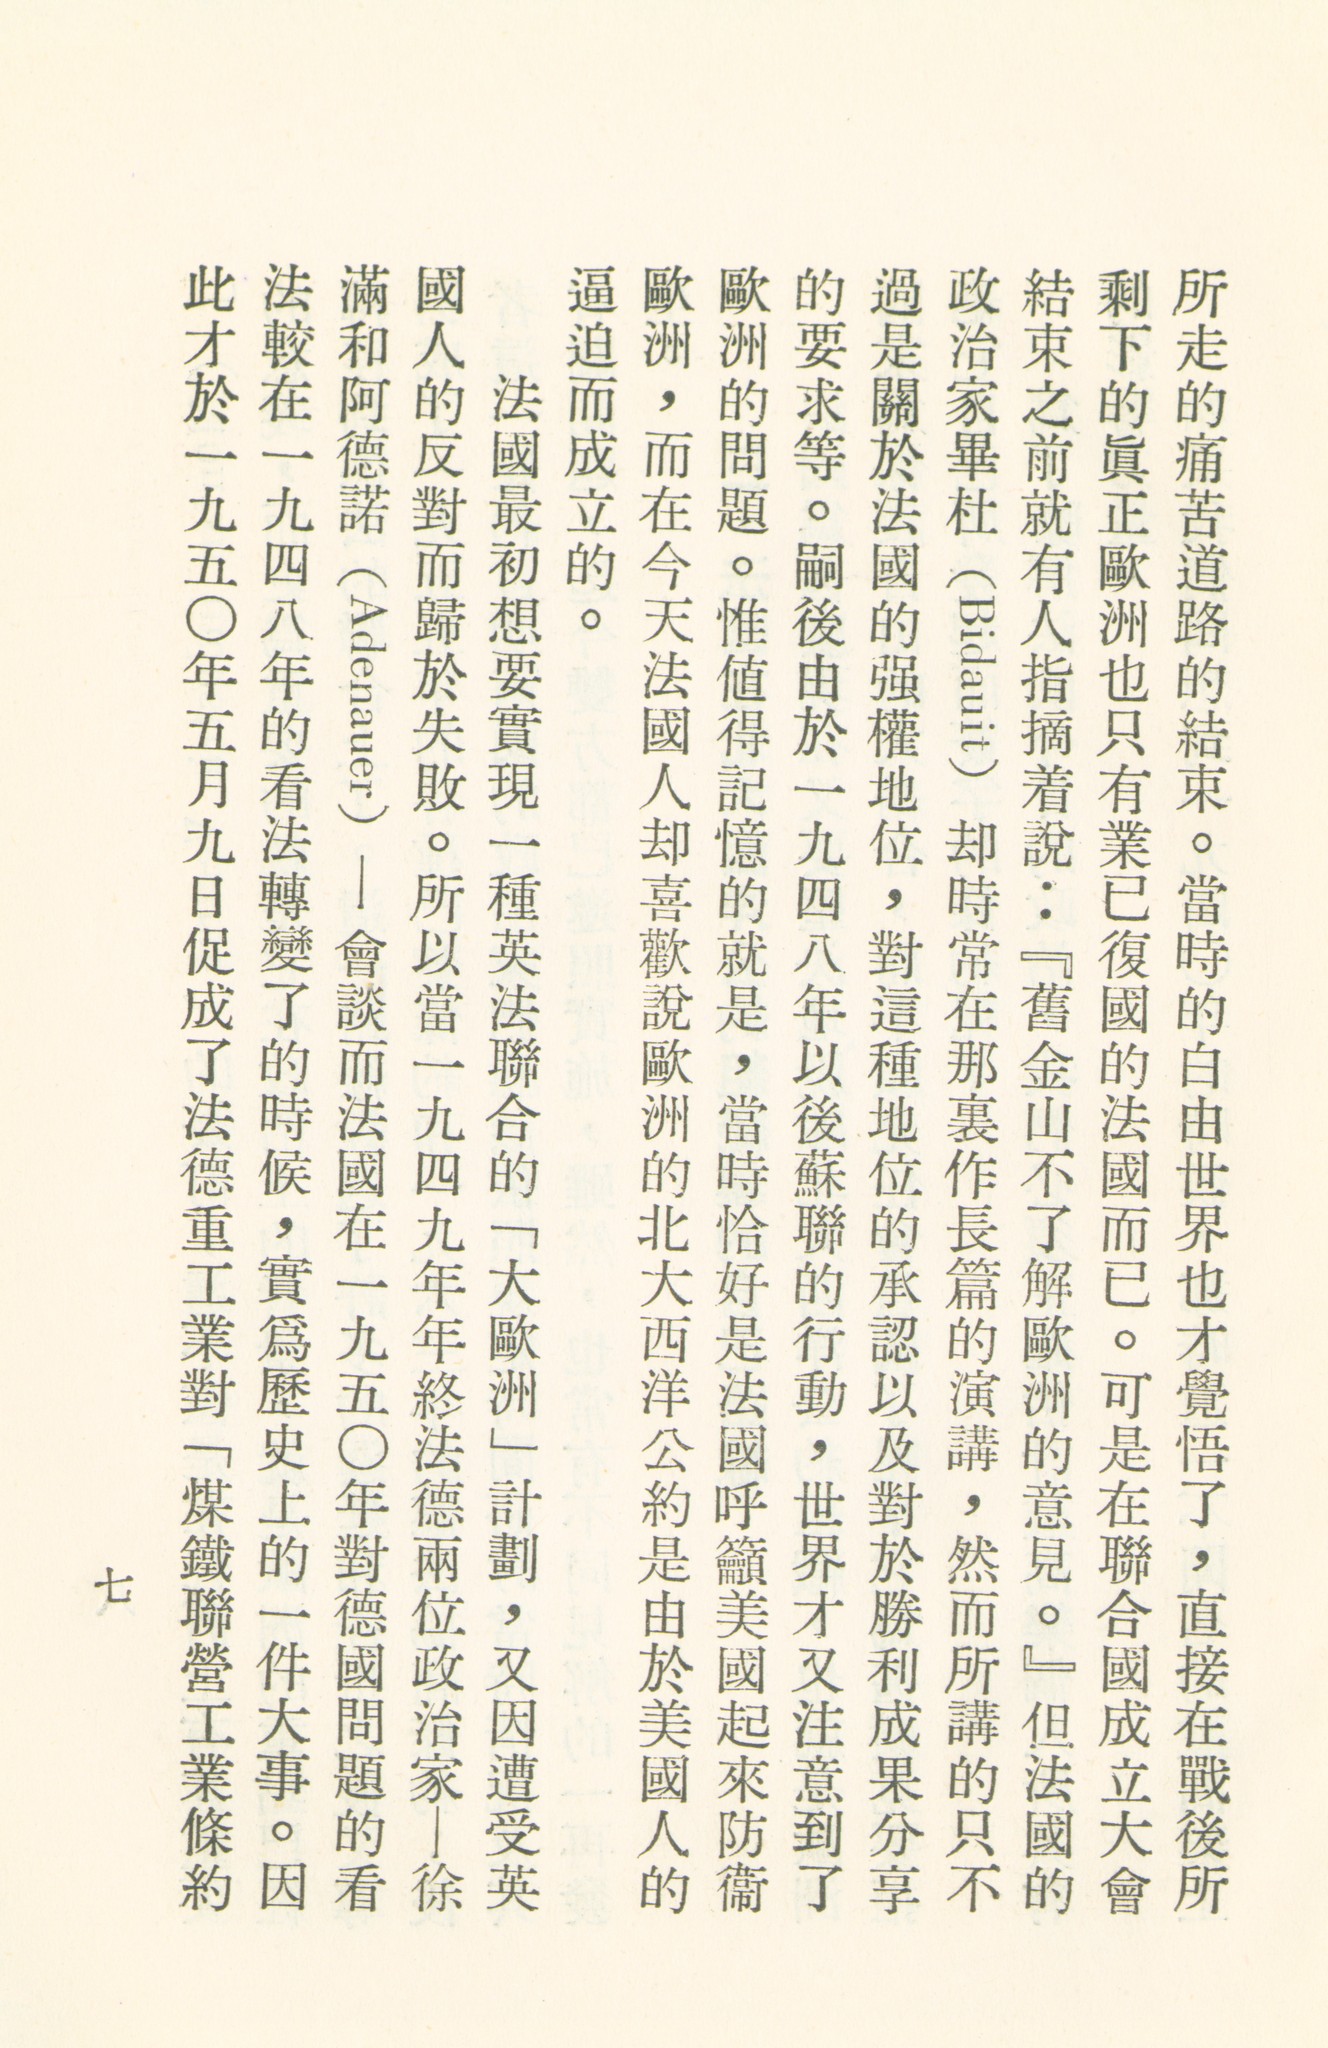 所走的痛苦道路的結束。當時的自由世界也才覺悟了，直接在戰後所
剩下的眞正歐洲也只有業已復國的法國而已。可是在聯合國成立大會
結束之前就有人指摘着說：『舊金山不了解歐洲的意見。』但法國的
政治家畢杜（Bidauit）却時常在那裏作長篇的演講，然而所講的只不
過是關於法國的强權地位，對這種地位的承認以及對於勝利成果分享
的要求等。嗣後由於一九四八年以後蘇聯的行動，世界才又注意到了
歐洲的問題。惟値得記憶的就是，當時恰好是法國呼籲美國起來防衞
歐洲，而在今天法國人却喜歡說歐洲的北大西洋公約是由於美國人的
逼迫而成立的。
法國最初想要實現一種英法聯合的「大歐洲」計劃，又因遭受英
國人的反對而歸於失敗。所以當一九四九年年終法德兩位政治家—徐
滿和阿德諾（Adenauer）—會談而法國在一九五〇年對德國問題的看
法較在一九四八年的看法轉變了的時候，實爲歷史上的一件大事。因
此才於一九五〇年五月九日促成了法德重工業對「煤鐵聯營工業條約
七